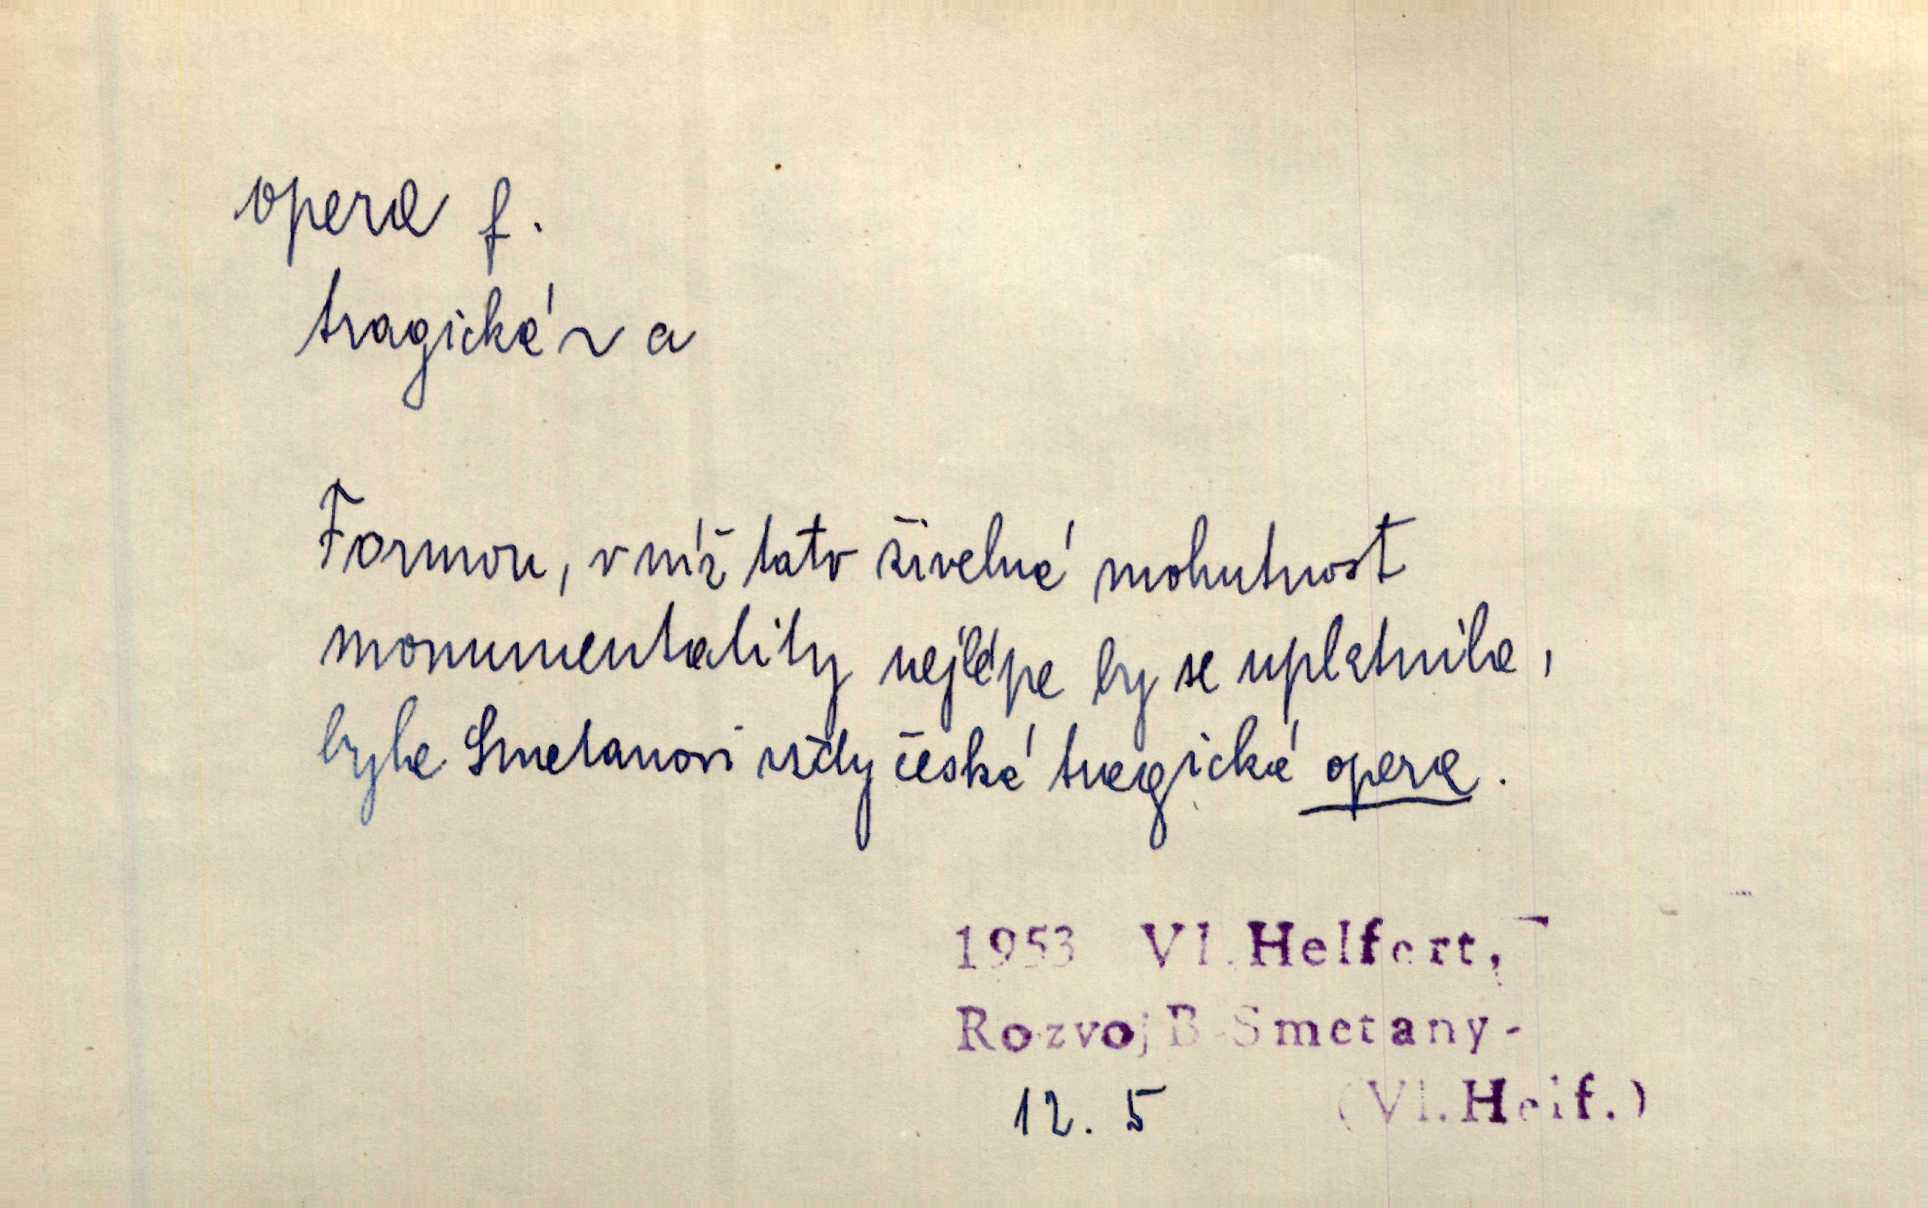 opera f.
tragická ~ a
Formou, v níž tato živelná mohutnost
monumentality nejlépe by se uplatnila,
byla Smetanovi vždy česká tragická opera.
1953 Vl. Helfert,
Rozvoj B. Smetany-
12. 5 (Vl. Helf.)